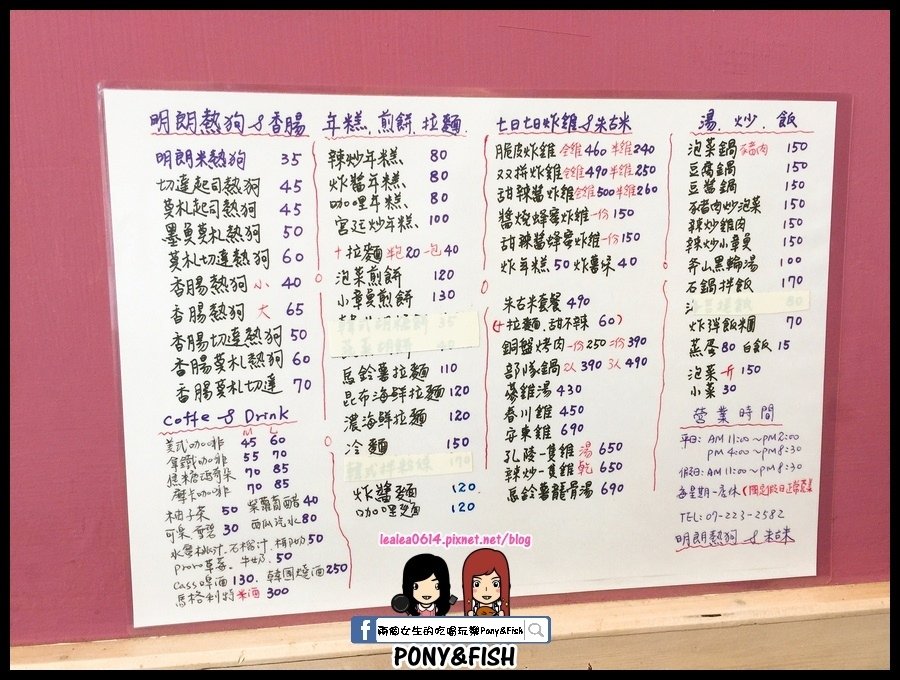 明朗熱狗&香腸
明朗米熱狗 35
切達起司熱狗 45
莫札起司熱狗 45
墨魚莫札熱狗 50
莫札切達熱狗 60
香腸熱狗 小 40
香腸熱狗 大 65
香腸切達熱狗 50
香腸莫札熱狗 60
香腸莫札切達 70
Coffe & Drink
M L
美式咖啡 45 60
拿鐵咖啡 55 70
焦糖瑪奇朵 70 85
摩卡咖啡 70 85
柚子茶 50 紫蘿蔔醋 40
可樂.雪碧 30 西瓜汽水 80
水蜜桃汁.石榴汁. 50
草莓.牛奶.50
Cass啤酒 130. 韓国燒酒 250
馬格利特米酒 300
年糕.煎餅.拉麵
辣炒年糕 80
炸醬年糕 80
咖哩年糕 80
宮廷炒年糕 100
+拉麵 半包20 一包40
泡菜煎餅 120
小章魚煎餅 130
韓式胡椒餅 35
40
馬鈴薯拉麵 110
昆布海鮮拉麵 120
濃海鮮拉麵 120
冷麵 150
170
炸醬麵 120
咖哩麵 120
七日七日炸雞&朱古米
脆皮炸雞 全雞460 半雞240
双拼炸雞 全雞490 半雞250
甜辣醬炸雞 全雞500 半雞260
醬燒蜂蜜炸雞 一份150
甜辣醬蜂蜜炸雞 一份150
炸年糕50 炸薯條40
朱古米套餐 490
(+拉麵.甜不辣 60)
銅盤烤肉 一份250 二份390
部隊鍋 2人390 3人490
蔘雞湯 430
春川雞 450
安東雞 690
孔陵一隻雞 湯 650
辣炒一隻雞 乾 650
馬鈴薯龍骨湯 690
湯.炒.飯
泡菜鍋 豬肉 150
豆腐鍋 150
豆醬鍋 150
豬肉炒泡菜 150
辣炒雞肉 150
辣炒小章魚 150
釜山黑輪湯 100
石鍋拌飯 170
80
炸彈飯糰 70
蒸蛋80 白飯15
泡菜一斤 150
小菜 30
營業時間
平日: AM 11:00~PM 2:00
PM 4:00~PM 8:30
假日: AM 11:00~PM 8:30
每星期一店休 (國定假日正常營業)
TEL: 07-223-2582
明朗熱狗&朱古米
lealea0614.pixnet.net/blog
f 兩個女生的吃喝玩樂Pony&Fish
PONY&FISH